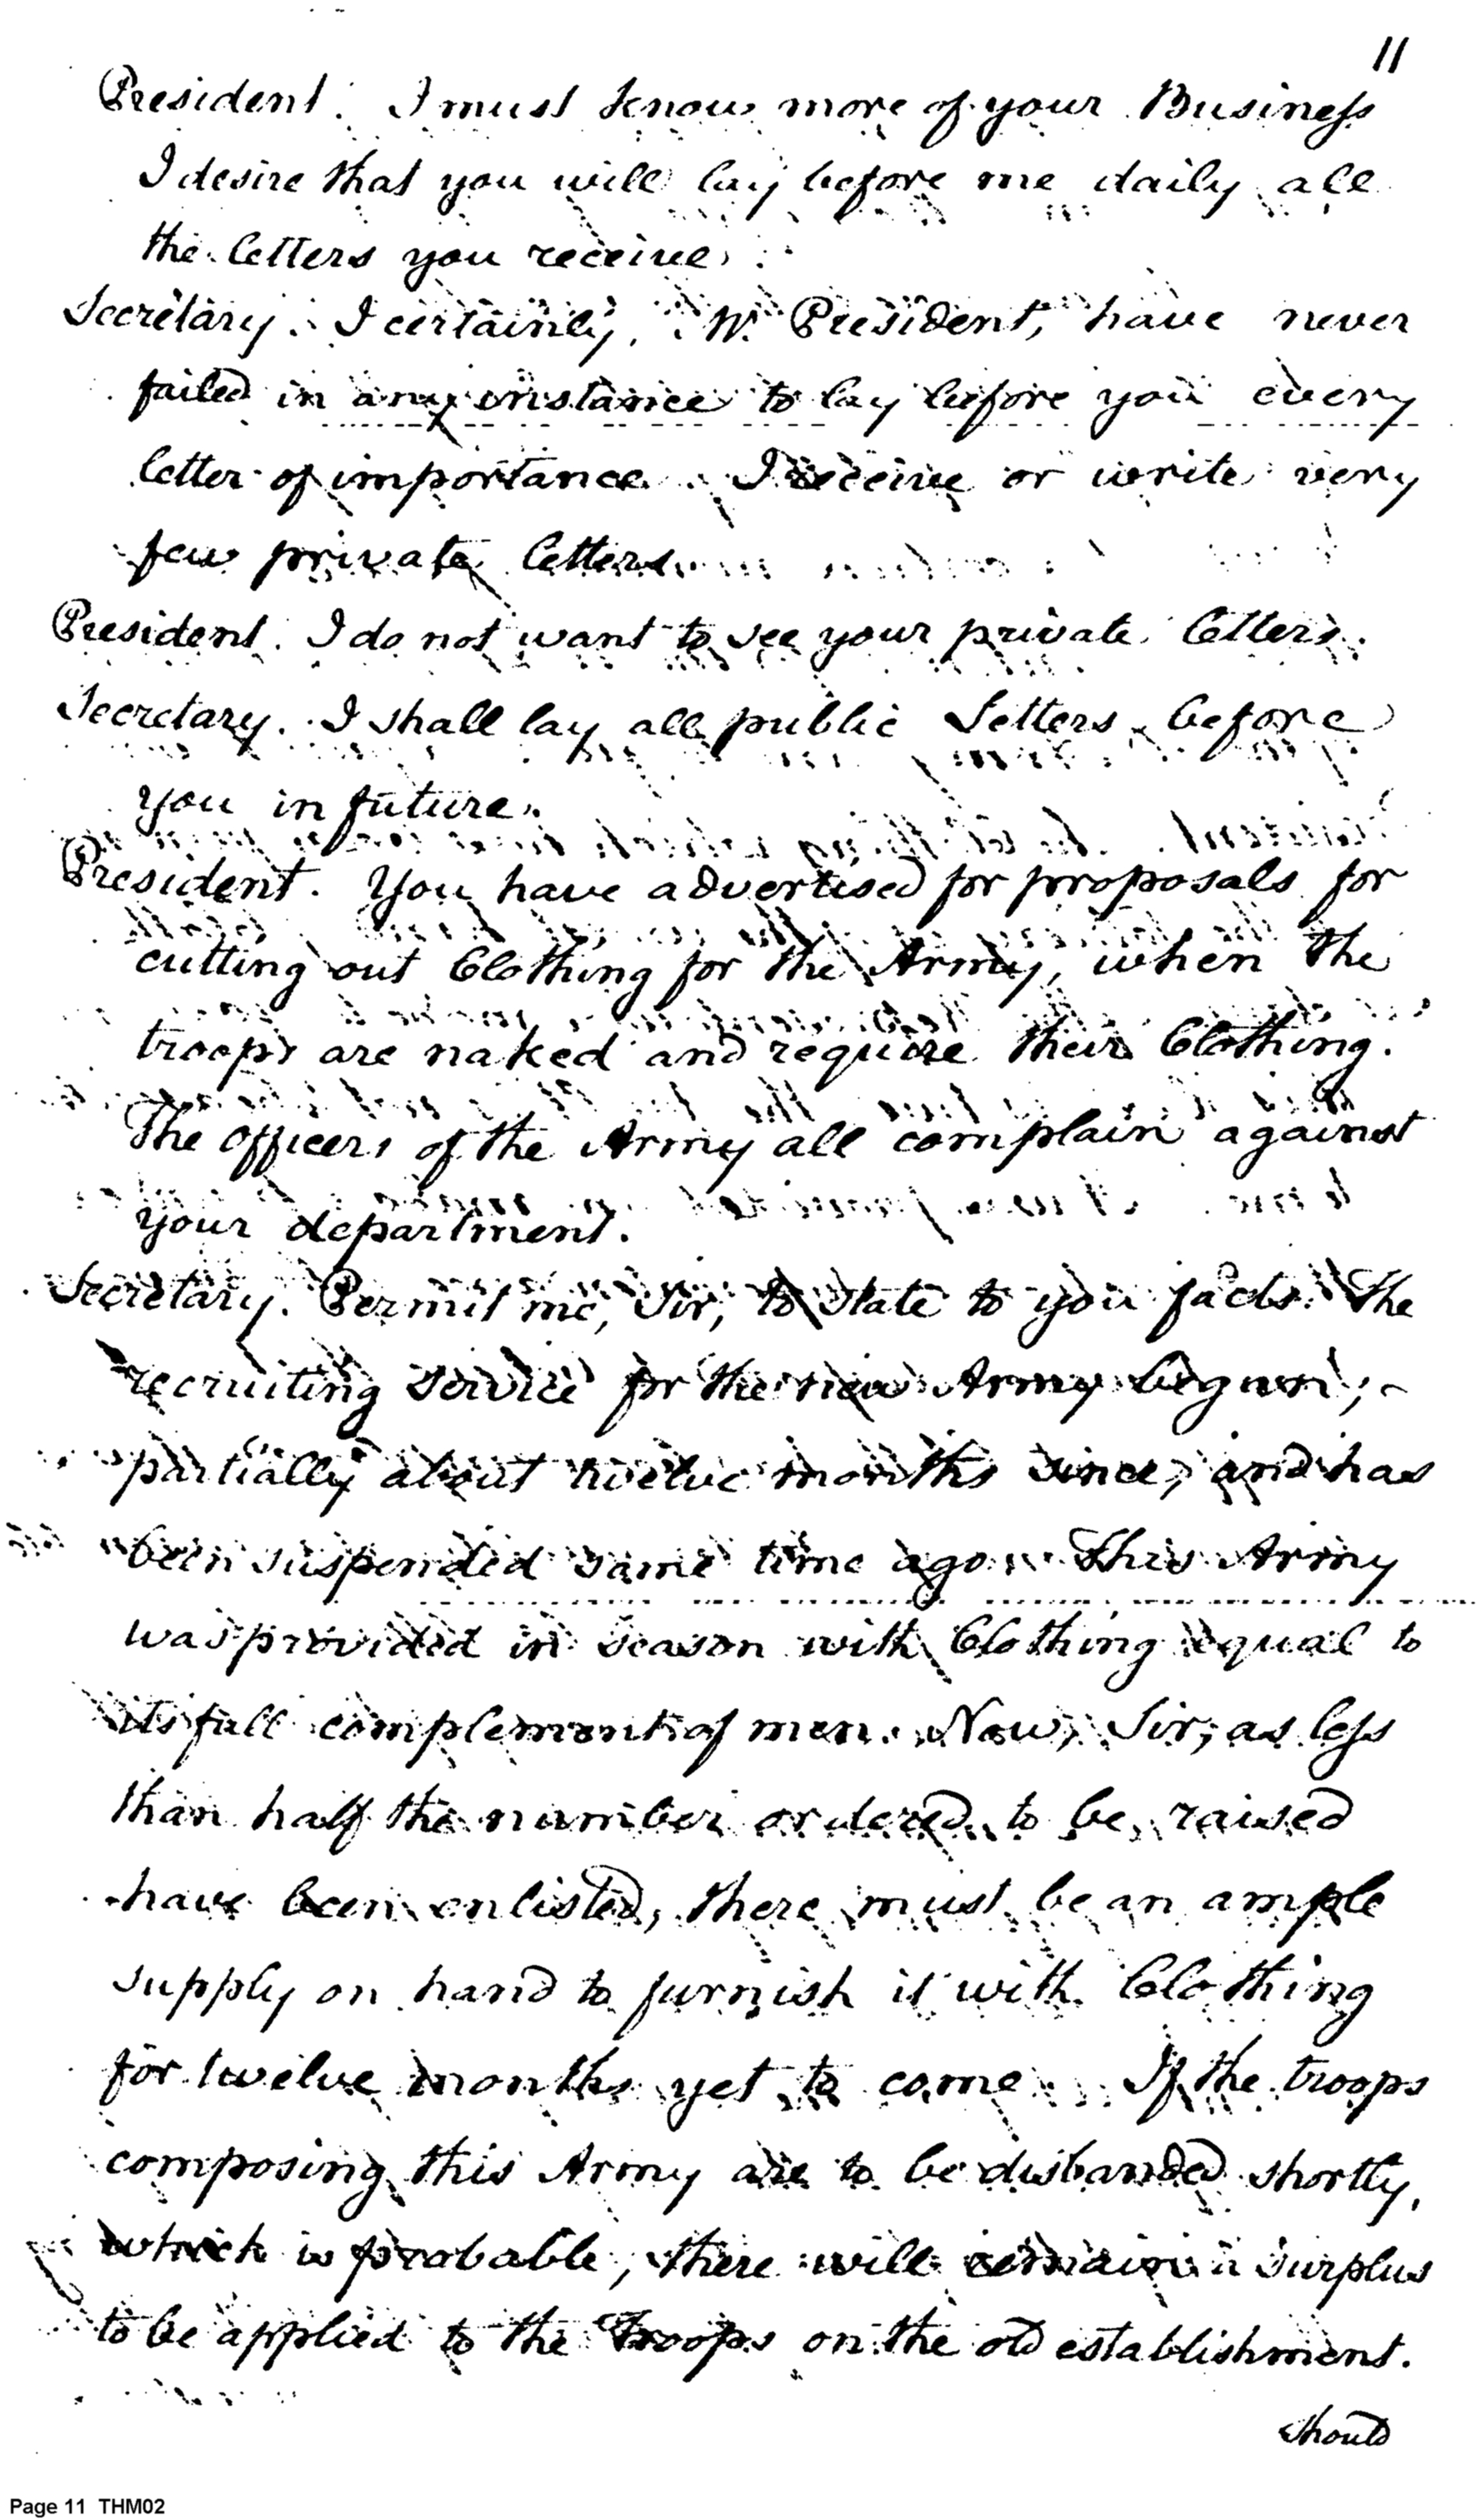 11
President. I must know more of your Business
I desire that you will lay before me daily all
the letters you receive.
Secretary. I certainly, Mr. President, have never
failed in any instance to lay before you every
letter of importance. I receive or write very
few private letters.
President. I do not want to see your private letters.
Secretary. I shall lay all public Letters before
you in future.
President. You have advertised for proposals for
cutting out Clothing for the Army, when the
troops are naked and require their Clothing.
The officers of the Army all complain against
your department.
Secretary. Permit me, Sir, to state to you facts. The
recruiting service for the new Army begun,
partially about twelve months since, and has
been suspended some time ago. This Army
was provided in season with Clothing equal to
its full complement of men. Now, Sir, as less
than half the number ordered to be raised
have been enlisted, there must be an ample
supply on hand to furnish it with Clothing
for twelve months yet to come. If the troops
composing this Army are to be disbanded shortly,
which is probable, there will remain a surplus
to be applied to the Troops on the old establishment.
should
Page 11 THM02